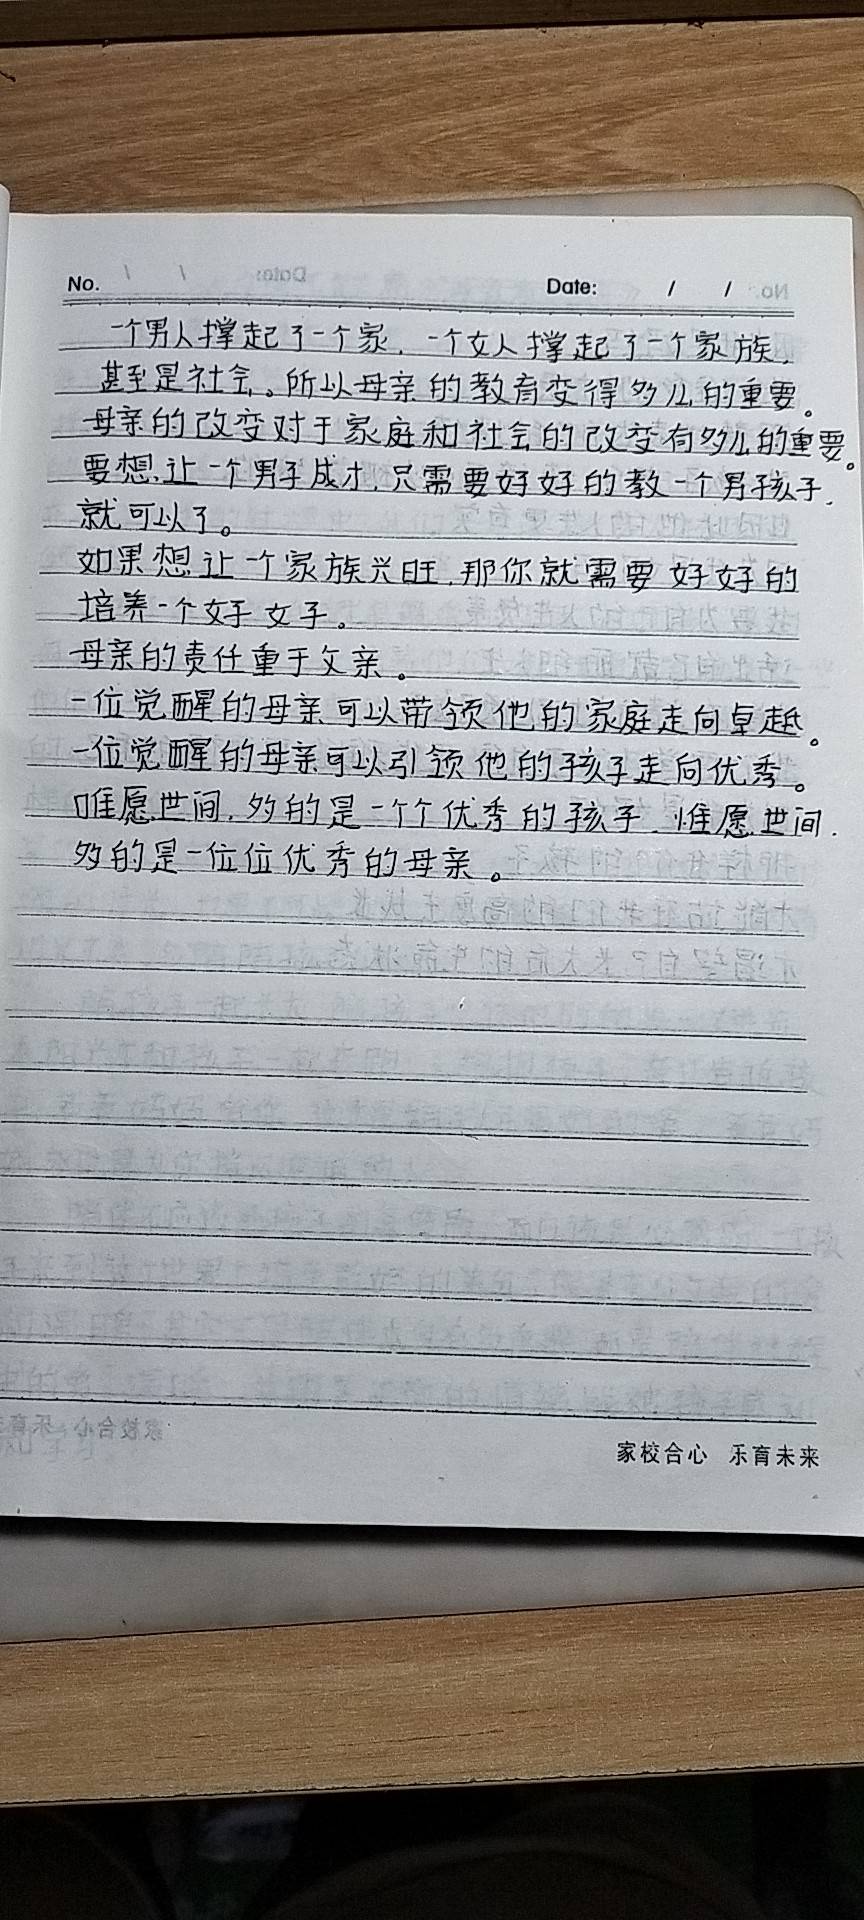 No. Date: / /
一个男人撑起了一个家，一个女人撑起了一个家族，
甚至是社会。所以母亲的教育变得多么的重要。
母亲的改变对于家庭和社会的改变有多么的重要。
要想让一个男子成才，只需要好好的教一个男孩子，
就可以了。
如果想让一个家族兴旺，那你就需要好好的
培养一个好女子。
母亲的责任重于父亲。
一位觉醒的母亲可以带领他的家庭走向卓越。
一位觉醒的母亲可以引领他的孩子走向优秀。
唯愿世间，多的是一个个优秀的孩子，惟愿世间，
多的是一位位优秀的母亲。
家校合心 乐育未来